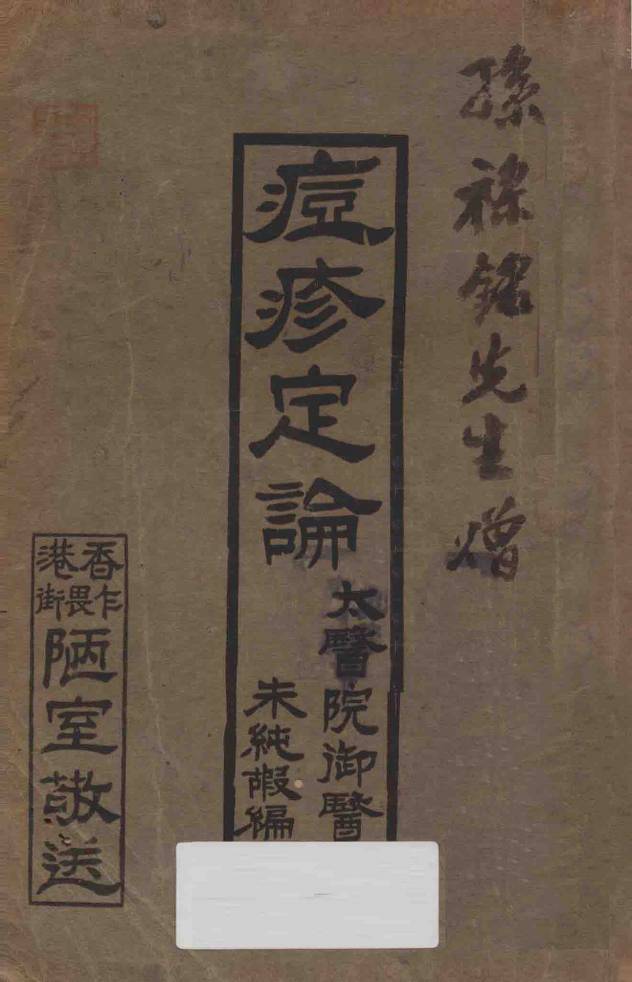 孫祿銘先生贈
痘疹定論
太醫院御醫
朱純嘏編
香港
乍畏街
陋室敬送